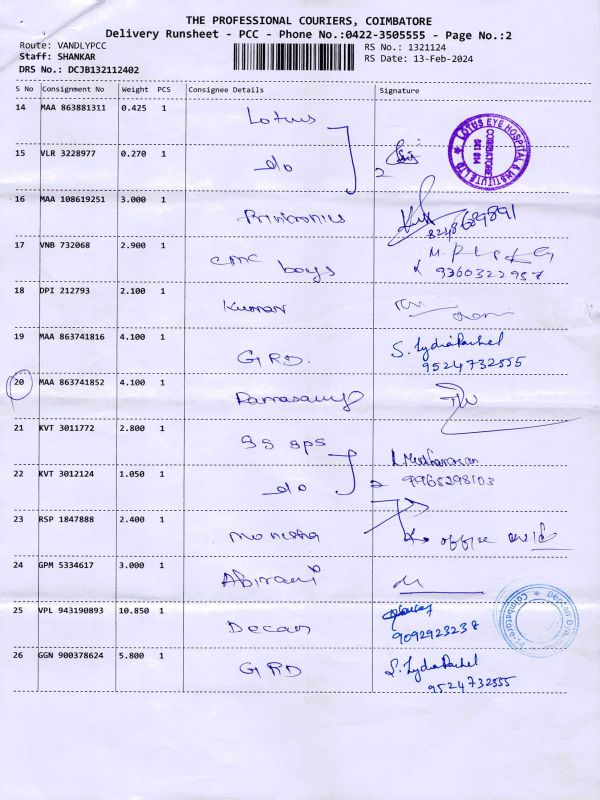 THE PROFESSIONAL COURIERS, COIMBATORE
Delivery Runsheet - PCC - Phone No.:0422-3505555 - Page No.:2
Route: VANDLYPCC RS No.: 1321124
Staff: SHANKAR RS Date: 13-Feb-2024
DRS No.: DCJB132112402
S No Consignment No Weight PCS Consignee Details Signature
14 MAA 863881311 0.425 1 Lotus
LOTUS EYE HOSPITAL & INSTITUTE LTD COIMBATORE 641 014
15 VLR 3228977 0.270 1 do 2
16 MAA 108619251 3.000 1
8248689891
17 VNB 732068 2.900 1 cmc boys
9360322957
18 DPI 212793 2.100 1 Kumar
19 MAA 863741816 4.100 1 GRD. S. Lydia Rachel
9524732555
20 MAA 863741852 4.100 1
21 KVT 3011772 2.800 1 gs sps
22 KVT 3012124 1.050 1 do 2 9965298103
23 RSP 1847888 2.400 1 Monisha office
24 GPM 5334617 3.000 1 Abirami
25 VPL 943190893 10.850 1 Decan
9092923238
Coimbatore
26 GGN 900378624 5.800 1 GRD S. Lydia Rachel
9524732555